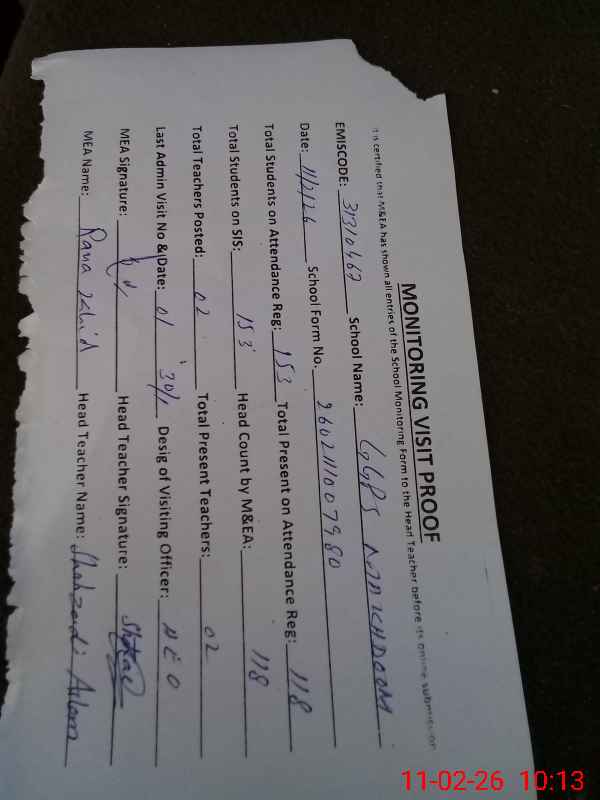 MONITORING VISIT PROOF
It is certified that M&EA has shown all entries of the School Monitoring Form to the Head Teacher before its online submission
EMISCODE: 31310467 School Name: GGPS
Date: 11/2/26 School Form No. 2602111007980
Total Students on Attendance Reg: 153 Total Present on Attendance Reg: 118
Total Students on SIS: 153 Head Count by M&EA: 118
Total Teachers Posted: 02 Total Present Teachers: 02
Last Admin Visit No & Date: 01 30/1 Desig of Visiting Officer: AEO
MEA Signature: Head Teacher Signature:
MEA Name: Rana Zahid Head Teacher Name: Shahzadi Aslam
11-02-26 10:13